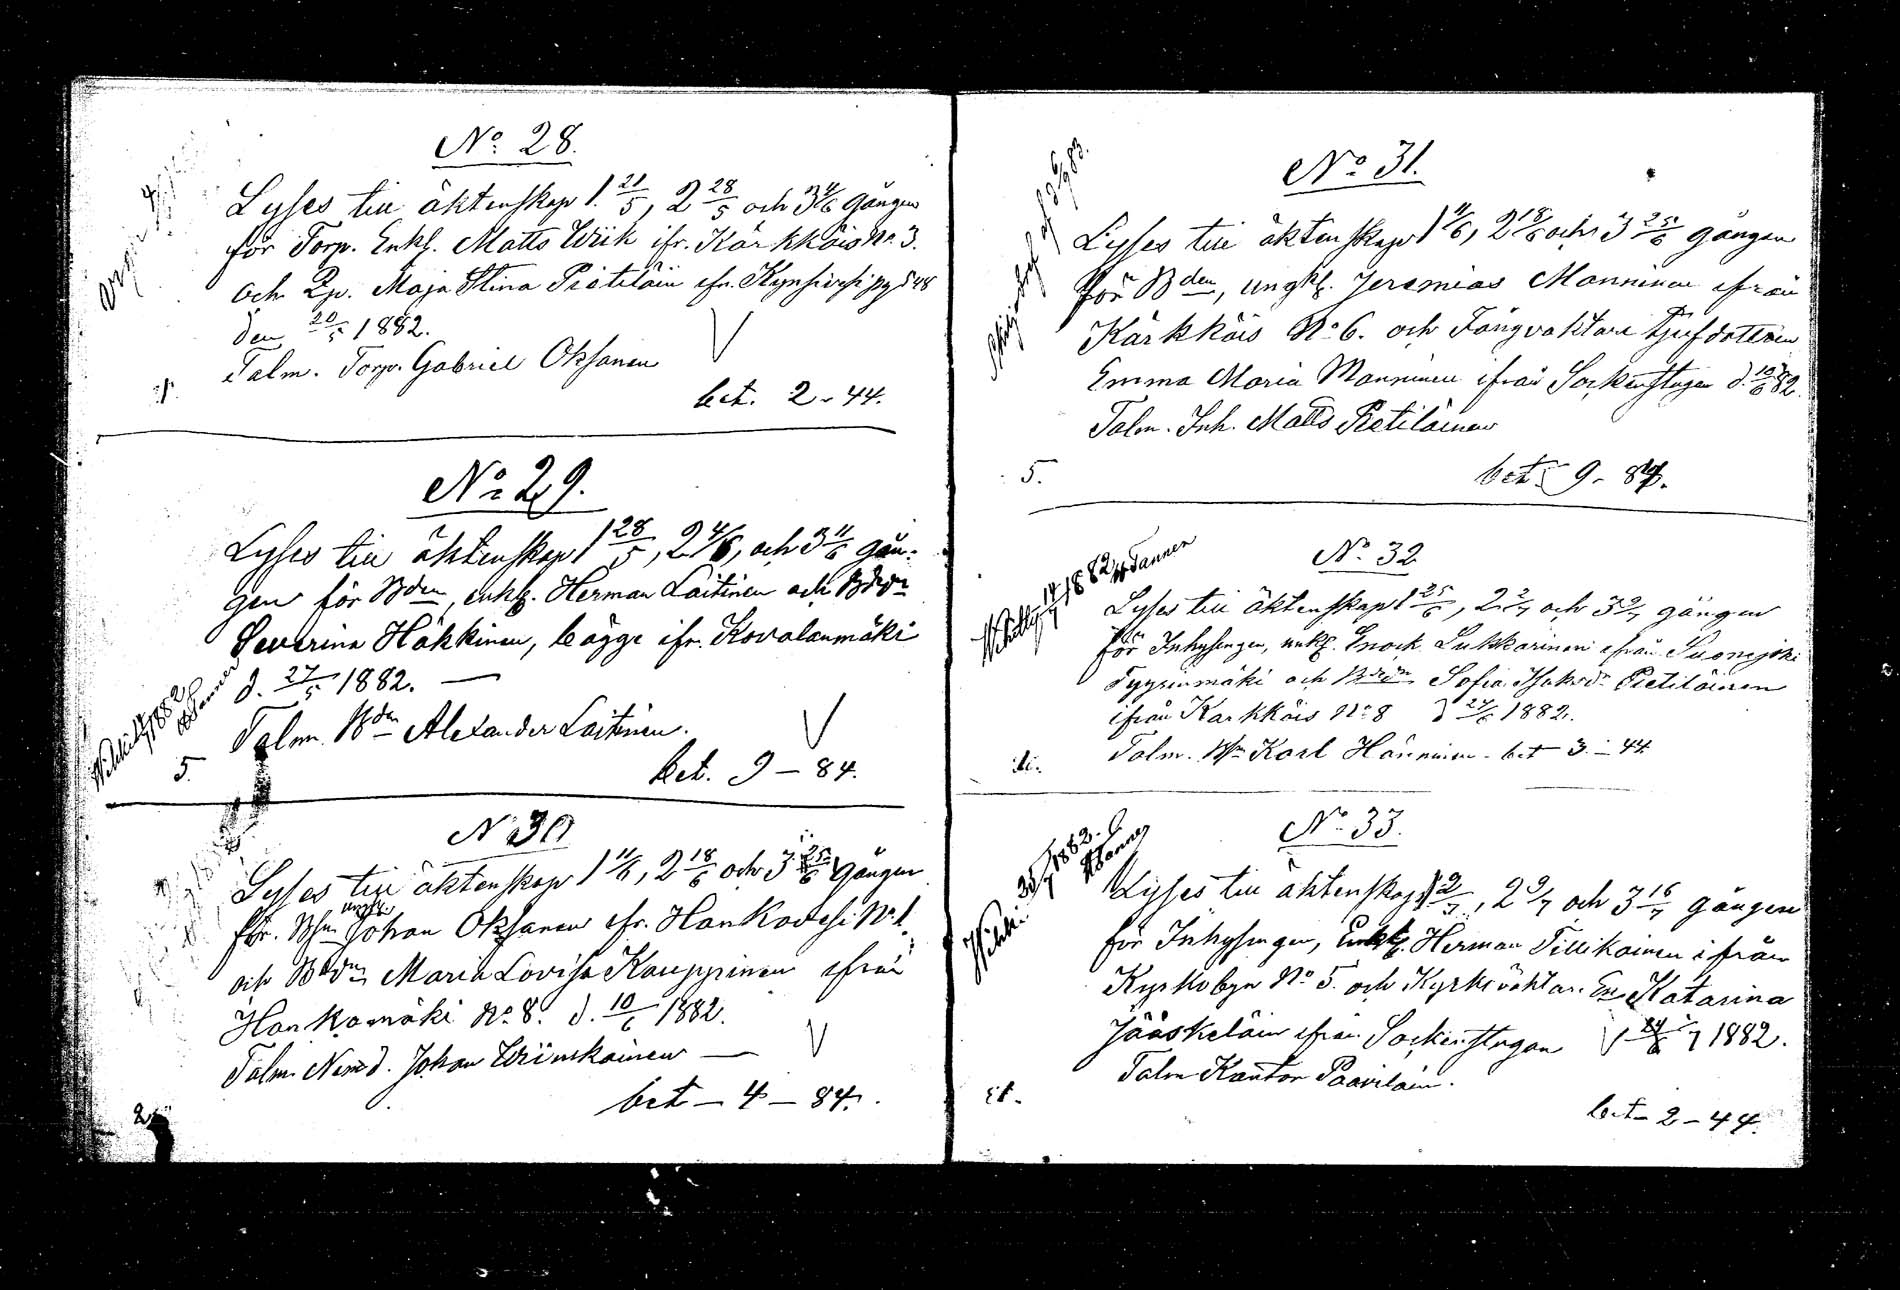 No 28.
Lyses till äktenskap 1. 21/5, 2 28/5 och 3 4/6 gången
för Torp. Enkl. Matts Wiik ifr. Kärkkäis No 3.
och Pig. Maja Stina Pietiläin ifr. Kynsivesi pg 548
den 20/5 1882.
Talm. Torp. Gabriel Oksanen
bet. 2-44.
No 29.
Lyses till äktenskap 1 28/5, 2 4/6, och 3 11/6 gån-
gen för Bden, enkl. Herman Laitinen och Bdr
Severina Häkkinen, bägge ifr. Kovalanmäki
d. 27/5 1882. —
Talm. Bden Alexander Laitinen.
5.
bet. 9-84.
N 30
Lyses till äktenskap 1 11/6, 2 18/6 och 3 25/6 gången
för. Bsn ungkl. Johan Oksanen ifr. Hankavesi No 1.
och Bdr Maria Lovisa Kauppinen ifrån
Hankamäki No 8. d. 10/6 1882.
Talm. Nämd. Johan —
bet - 4 - 84.
2
No 31.
Lyses till äktenskap 1 11/6, 2 18/6 och 3 25/6 gången
för Bden, ungkl. Jeremias Manninen ifrån
Kärkkäis No 6. och Fångvaktare dottren
Emma Maria Manninen ifrån Sockenstugan d. 10/6 82.
Talm. Inh. Matts Pietiläinen
5.
bet. 9-84.
1882 H Tannen
No 32
Lyses till äktenskap 1 25/6, 2 2/7 och 3 9/7 gången
för Inhysingen, unkl. Enock Lukkarinen ifrån Suonejoki
Tyyrinmäki och Bdr Sofia Isaksdr Pietiläinen
ifrån Karkkäis No 8 d 24/6 1882.
Talm. Bn Karl Hänninen - bet - 3 - 44
No 33.
Lyses till äktenskap 1 2/7, 2 9/7 och 3 16/7 gången
för Inhysingen, Enkl. Herman Tillikainen ifrån
Kyrkobyn No 5. och Kyrkväktar. Katarina
Jääskeläin ifrån Sockenstugan 1/7 1882.
Talm Kantor Paaviläin.
bet - 2 - 44.